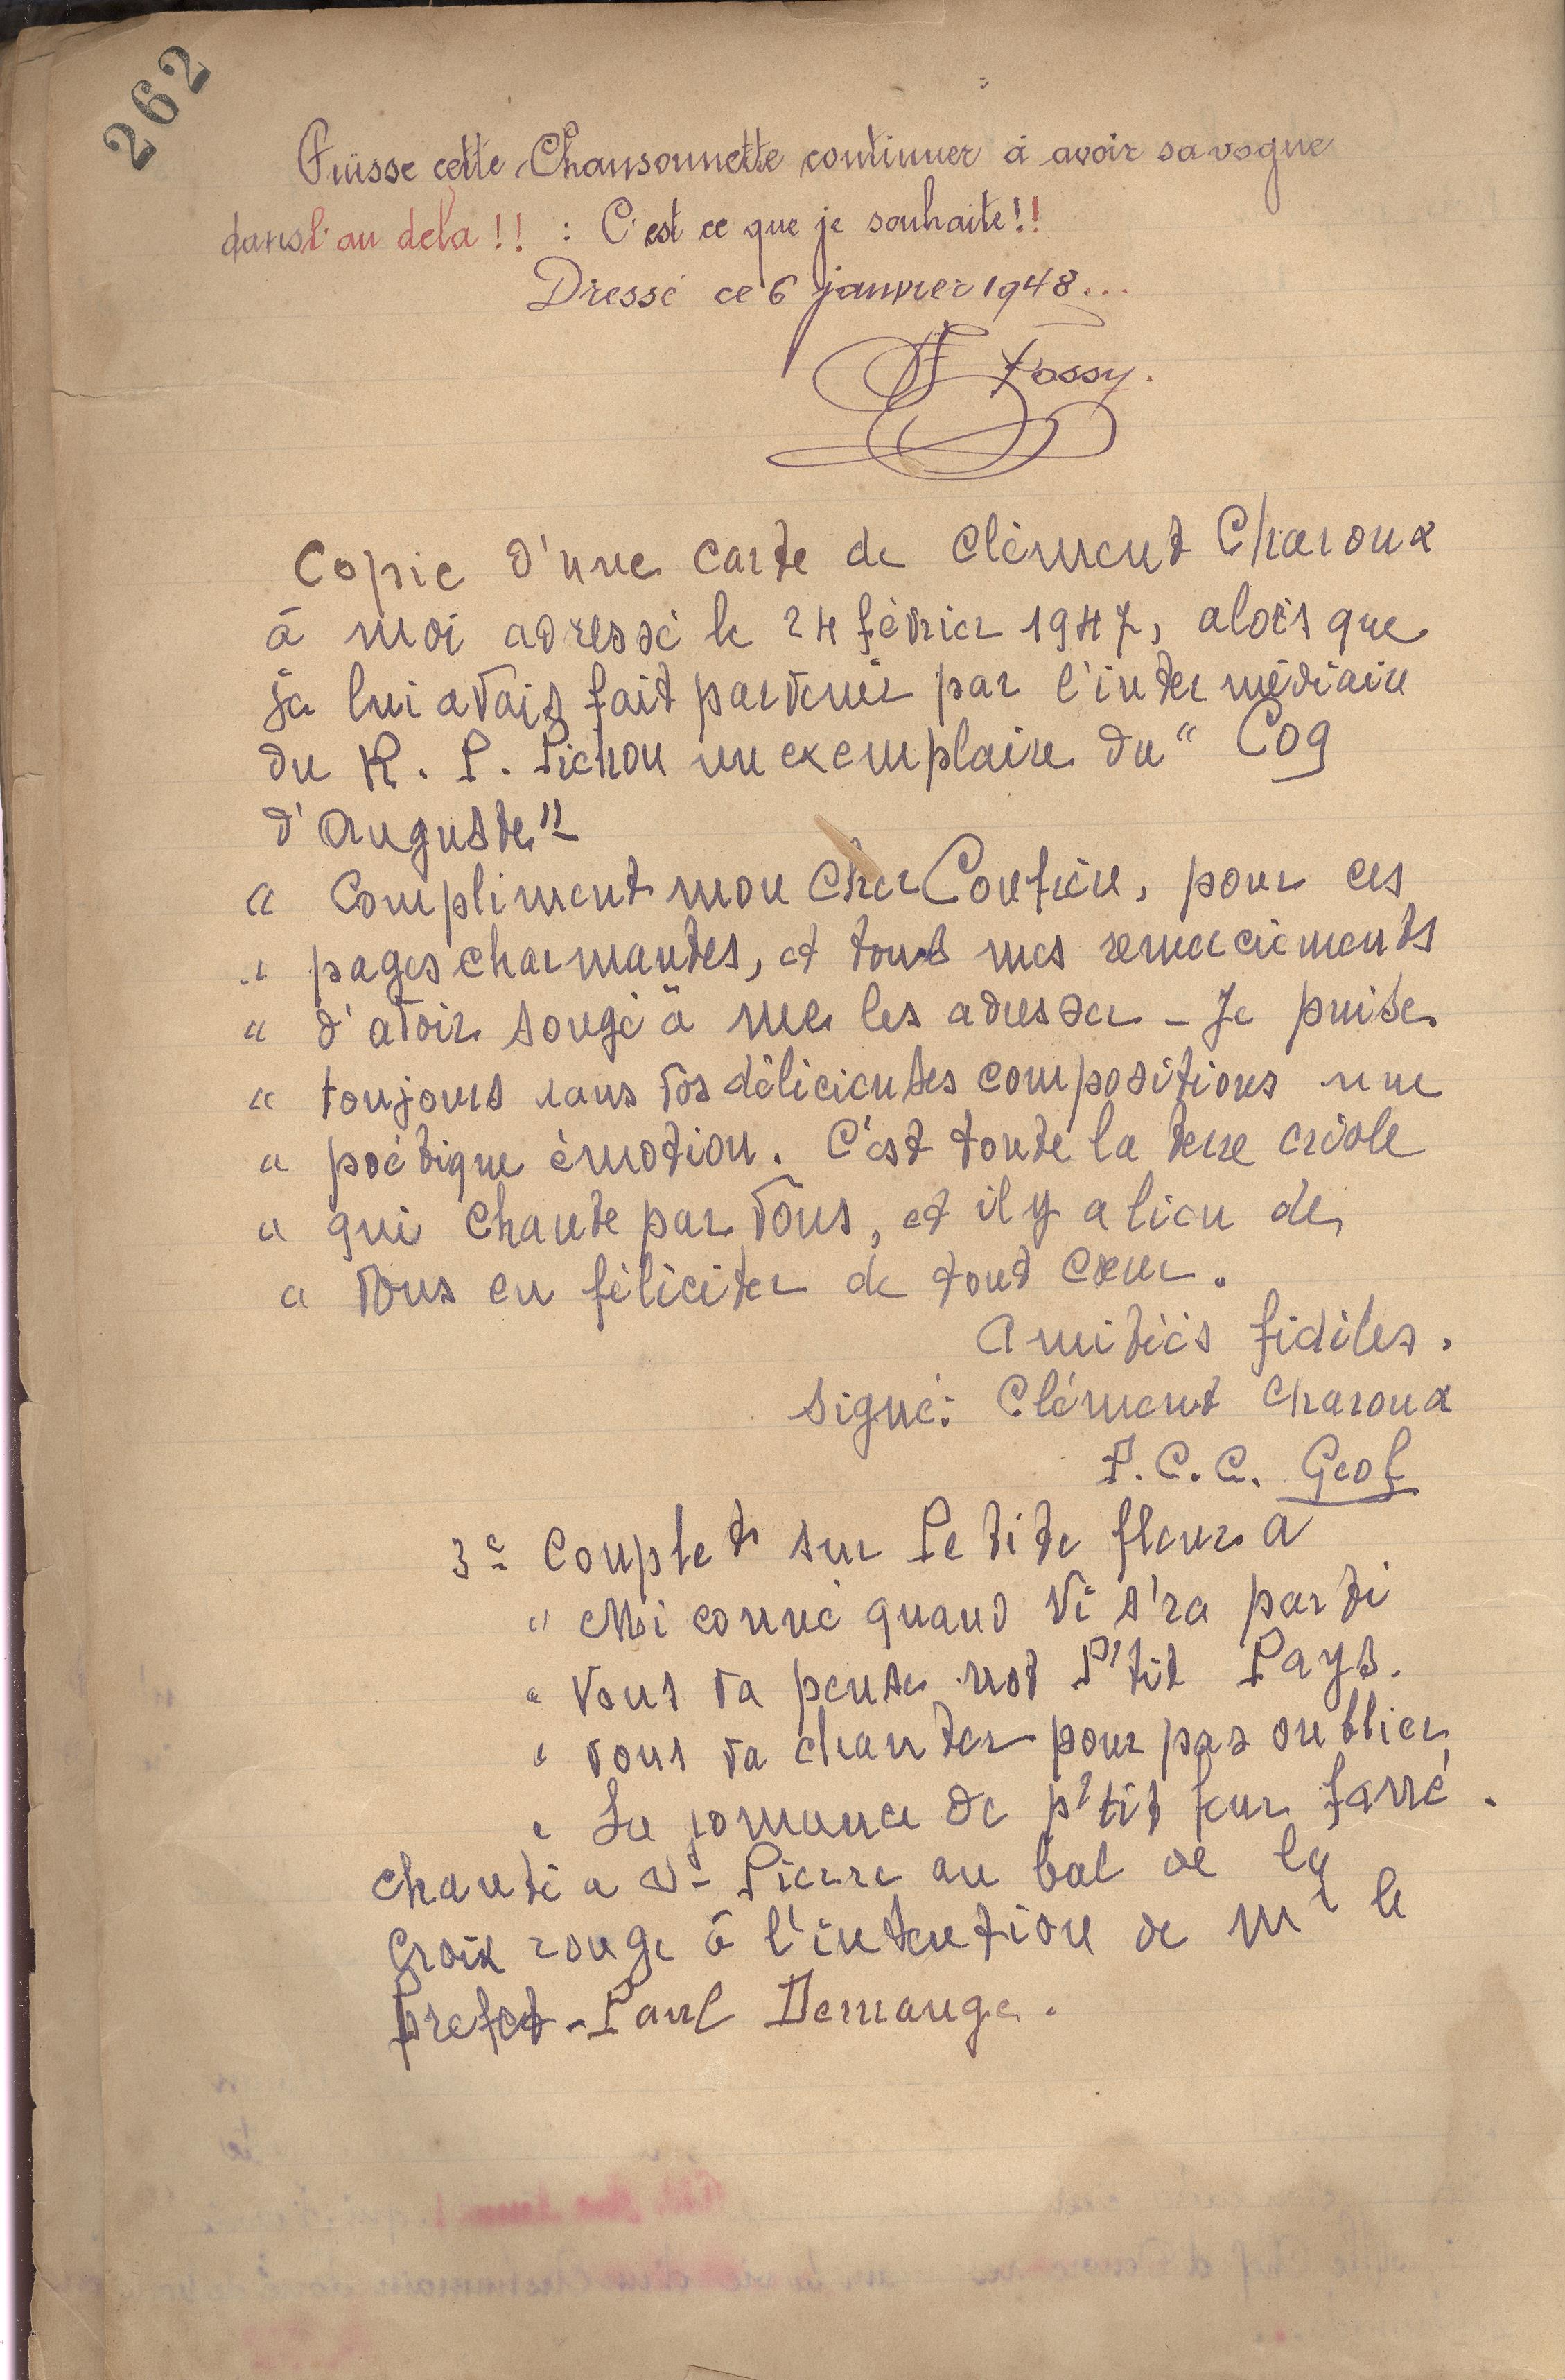 262
Puisse cette Chansonnette continuer à avoir sa vogue
dans l'au delà !! : C'est ce que je souhaite !!
Dressé ce 6 janvier 1948...
Fossy.
Copie d'une carte de Clément Charoux
à moi adressé le 24 février 1947, alors que
je lui avais fait parvenir par l'intermédiaire
du R. P. Pichon un exemplaire du " Coq
d'Auguste"
" Compliment mon cher Confrère, pour ces
" pages charmantes, et tous mes remerciements
" d'avoir songé à me les adresser - Je puise
" toujours dans vos délicieuses compositions une
" poétique émotion. C'est toute la terre créole
" qui chante par vous, et il y a lieu de
" vous en féliciter de tout cœur.
Amitiés fidèles.
Signé: Clément Charoux
P.C.C. Geof
3e Couplet sur Petite fleur a
" Mi conné quand Vi s'ra parti
" Vous va penser not P'tit Pays.
" Vous va chanter pour pas oublier
" La romance de p'tit fleur fanné.
Chanté a St Pierre au bal de la
Croix rouge à l'intention de Mr le
Prefet - Paul Demange.